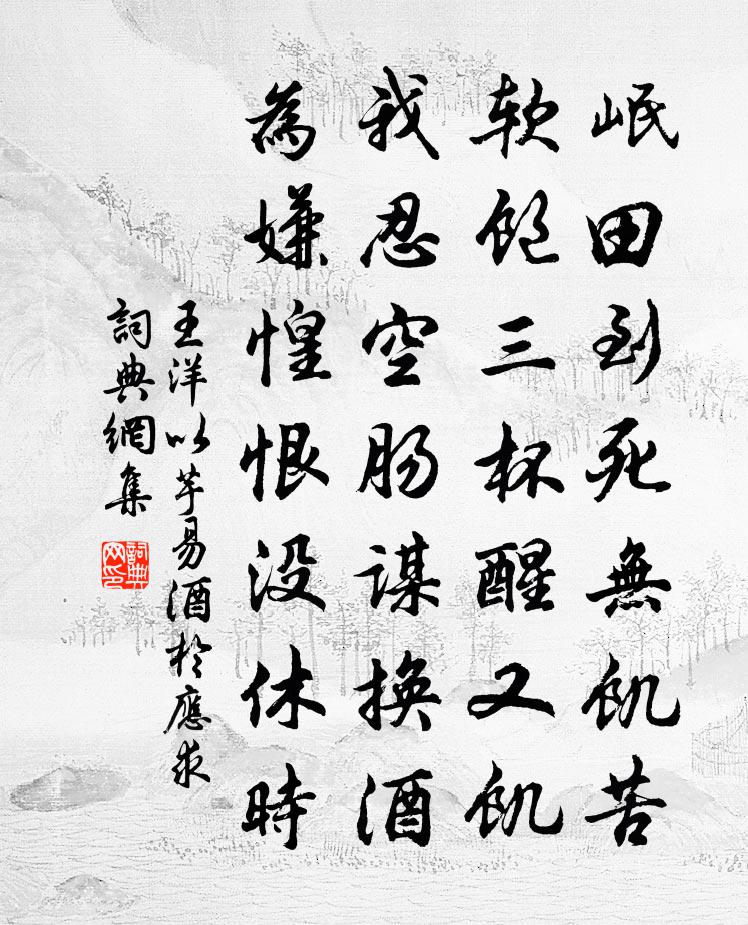 岷田到死無飢苦
軟飽三杯醒又飢
我忍空腸謀換酒
為嫌惶恨没休時
王洋以芋易酒於應求
詞典網集
詞典网印